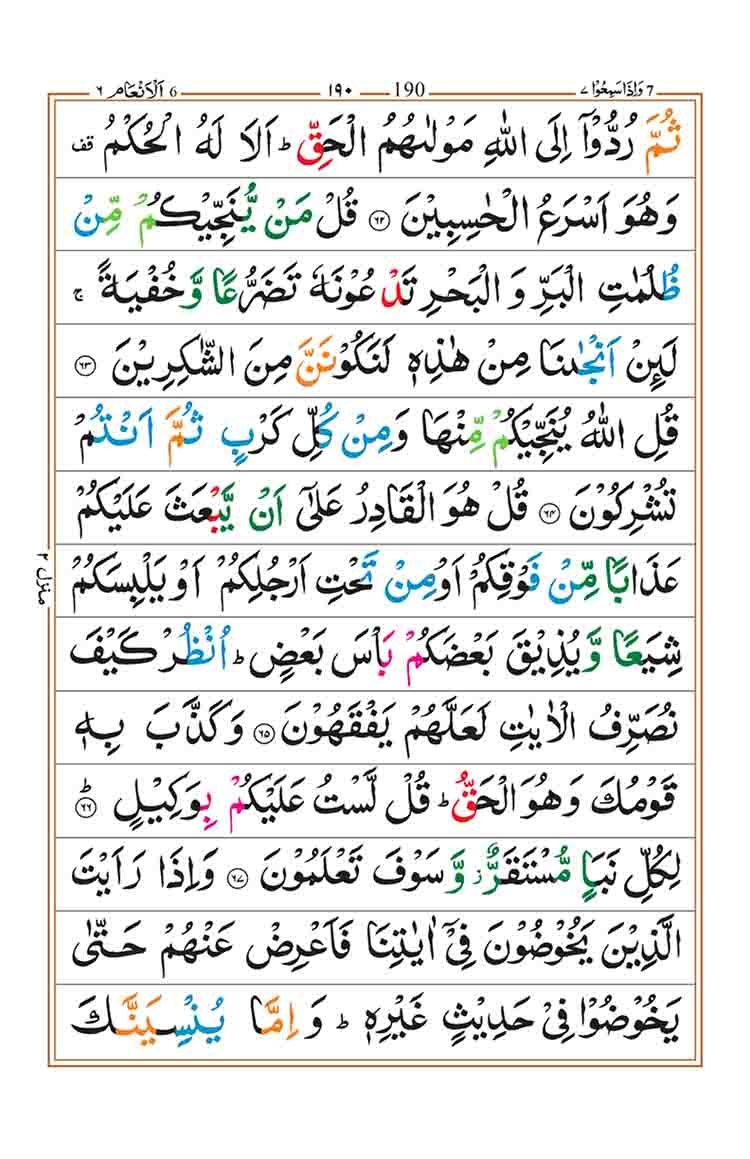 ٦ اَلْاَنْعَام 6 ١٩٠ 190 ٧ وَاِذَا سَمِعُوْا 7
ثُمَّ رُدُّوْۤا اِلَى اللّٰهِ مَوْلٰىهُمُ الْحَقِّ ؕ اَلَا لَهُ الْحُكْمُ قف
وَهُوَ اَسْرَعُ الْحٰسِبِيْنَ ۝۶۲ قُلْ مَنْ يُّنَجِّيْكُمْ مِّنْ
ظُلُمٰتِ الْبَرِّ وَ الْبَحْرِ تَدْعُوْنَهٗ تَضَرُّعًا وَّخُفْيَةً ۚ
لَىِٕنْ اَنْجٰىنَا مِنْ هٰذِهٖ لَنَكُوْنَنَّ مِنَ الشّٰكِرِيْنَ ۝۶۳
قُلِ اللّٰهُ يُنَجِّيْكُمْ مِّنْهَا وَمِنْ كُلِّ كَرْبٍ ثُمَّ اَنْتُمْ
تُشْرِكُوْنَ ۝۶۴ قُلْ هُوَ الْقَادِرُ عَلٰۤى اَنْ يَّبْعَثَ عَلَيْكُمْ
عَذَابًا مِّنْ فَوْقِكُمْ اَوْ مِنْ تَحْتِ اَرْجُلِكُمْ اَوْ يَلْبِسَكُمْ
شِيَعًا وَّيُذِيْقَ بَعْضَكُمْ بَاْسَ بَعْضٍ ؕ اُنْظُرْ كَيْفَ
نُصَرِّفُ الْاٰيٰتِ لَعَلَّهُمْ يَفْقَهُوْنَ ۝۶۵ وَكَذَّبَ بِهٖ
قَوْمُكَ وَهُوَ الْحَقُّ ؕ قُلْ لَّسْتُ عَلَيْكُمْ بِوَكِيْلٍ ؕ۝۶۶
لِكُلِّ نَبَاٍ مُّسْتَقَرٌّ ؗ وَّسَوْفَ تَعْلَمُوْنَ ۝۶۷ وَاِذَا رَاَيْتَ
الَّذِيْنَ يَخُوْضُوْنَ فِيْۤ اٰيٰتِنَا فَاَعْرِضْ عَنْهُمْ حَتّٰى
يَخُوْضُوْا فِيْ حَدِيْثٍ غَيْرِهٖ ؕ وَ اِمَّا يُنْسِيَنَّكَ
منزل ٢